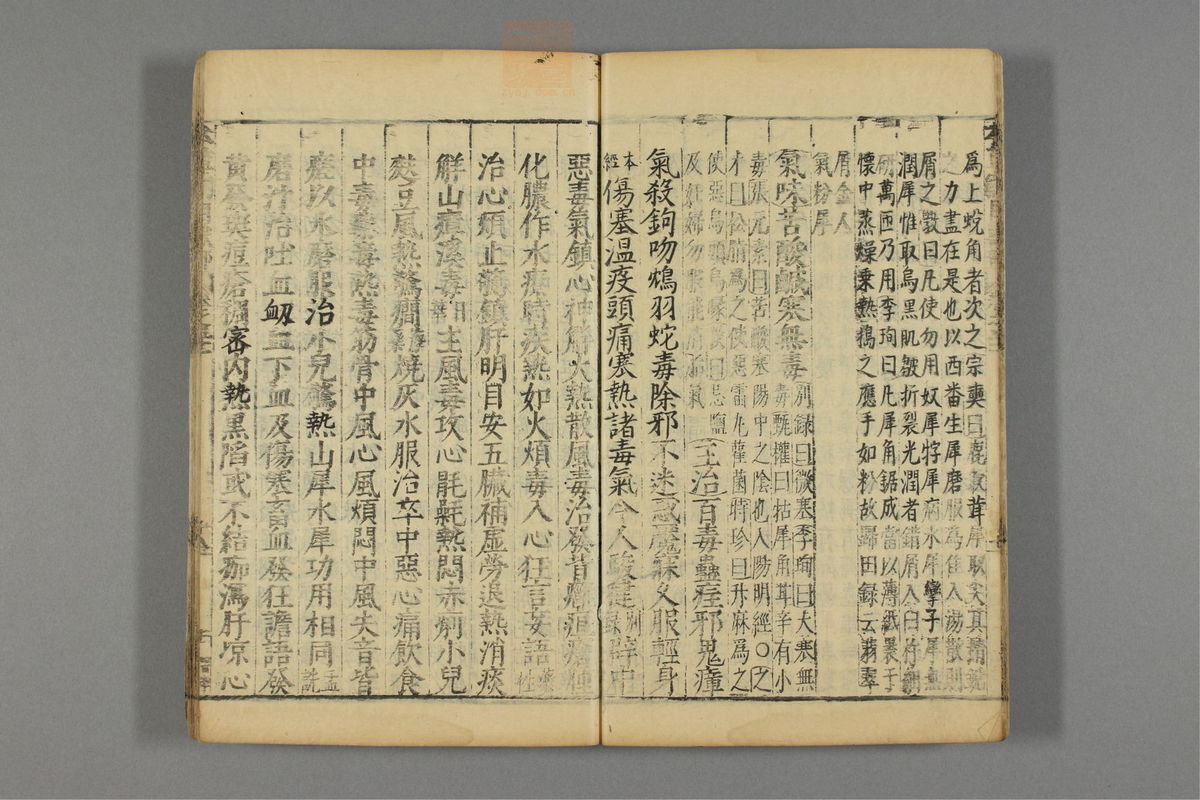 為上蛻角者次之宗奭曰鹿取茸犀取尖其精鋭
之力盡在是也以西番生犀磨服為佳入湯散則
屑之斆曰凡使勿用奴犀牸犀病水犀孿子犀無
潤犀惟取烏黑肌皺折裂光潤者錯屑入臼杵細
研萬匝乃用李珣曰凡犀角鋸成當以薄紙裹于
懷中蒸燥乗熱擣之應手如粉故歸田録云翡翠
屑金人
氣粉犀
氣味苦酸鹹寒無毒别録曰微寒李珣曰大寒無
毒甄權曰牯犀角甘辛有小
毒張元素曰苦酸寒陽中之陰也入陽明經○之
才曰松脂為之使惡雷丸雚菌時珍曰升麻為之
使惡烏頭烏喙斆曰忌鹽
及妊婦勿服能消胎氣
主治百毒蠱疰邪鬼瘴
氣殺鉤吻鴆羽蛇毒除邪不迷惑魘寐久服輕身
本經
傷寒温疫頭痛寒熱諸毒氣令人駿健别録辟中
惡毒氣鎮心神解大熱散風毒治發背癰疽瘡腫
化膿作水療時疾熱如火煩毒入心狂言妄語藥性
治心煩止驚鎮肝明目安五臟補虚勞退熱消痰
解山瘴溪毒日華主風毒攻心毷氉熱悶赤痢小兒
麩豆風熱驚癎海藥燒灰水服治卒中惡心痛飲食
中毒藥毒熱毒筋骨中風心風煩悶中風失音皆
瘥以水磨服治小兒驚熱山犀水犀功用相同孟詵
磨汁治吐血衂血下血及傷寒畜血發狂譫語發
黄發斑痘瘡稠密内熱黒陷或不結痂瀉肝凉心